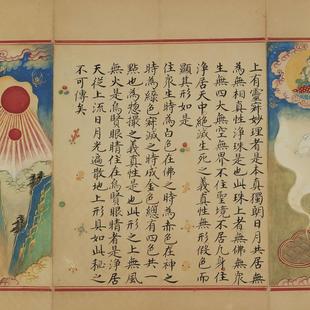 上有靈寂妙理者是本真獨朗日月共居無
為無相真性淨珠是也此珠上者無佛無衆
生無四大無空無界不住聖境不居凡身住
淨居天中絕滅生死之義真性無形假色而
顯其形如是
住衆生時為白色在佛之時為赤色在神之
時為綠色寂滅之時成金色總有四色共一
點也為揔撮之義真性是也此形之上無風
無火是烏賢眼睛住在烏賢眼睛者是淨居
天從上流日月光遍散地上形具如此秘之
不可傳矣